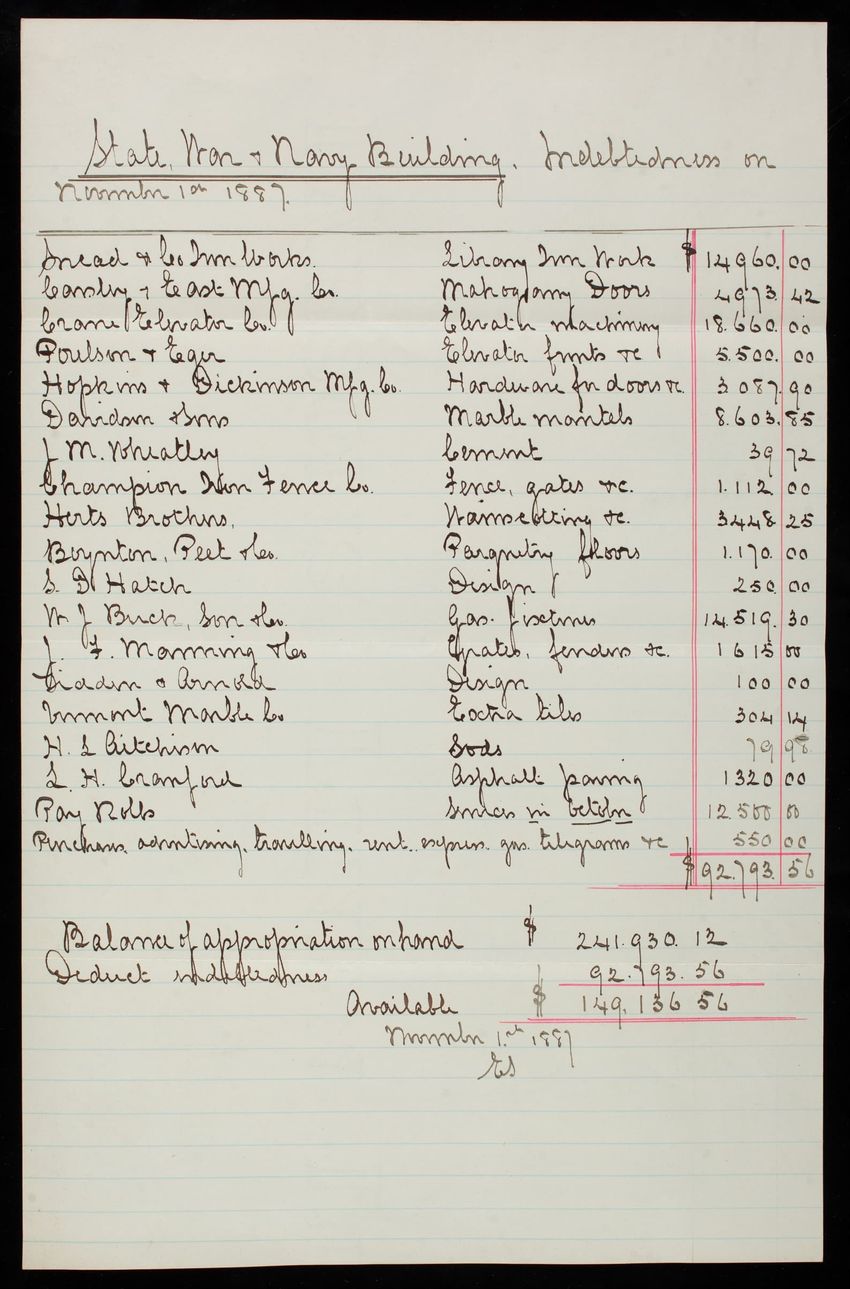 State, War & Navy Building. Indebtedness on
November 1st 1887.
Snead & Co Iron Works. Library Iron Work $ 14960.00
Cassidy & East Mfg. Co. Mahogany Doors 4973.42
Crane Elevator Co. Elevator machinery 18.660.00
Poulson & Eger Elevator fronts &c 5.500.00
Hopkins & Dickinson Mfg. Co. Hardware for doors &c. 3087.90
Davidson & Sons Marble mantels 8.603.85
J M. Wheatley Cement 39 72
Champion Iron Fence Co. Fence, gates &c. 1.112 00
Herts Brothers, Wainscotting &c. 3448 25
Boynton, Peet & Co. Parquetry floors 1.170.00
S. D. Hatch Design 250.00
W J Buck, Son & Co. Gas-fixtures 14.519.30
J. F. Manning & Co Grates, fenders &c. 1615 00
& Arnold Design 100 00
Vermont Marble Co Extra tiles 304 14
H. L Aitchison Sods 79 98
L. H. Cranford Asphalt paving 1320 00
Pay Rolls Services in October 12500 00
Purchases, advertising, travelling, rent, express, gas, telegrams &c 550 00
$92.793.56
Balance of appropriation on hand $ 241.930.12
Deduct indebtedness 92.793.56
Available $ 149.136 56
November 1.st 1887
ES